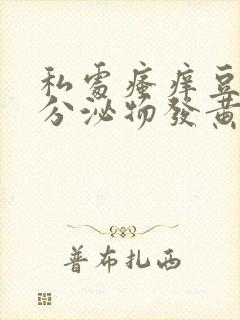 私處瘙痒豆
分泌物發黃
普布扎西